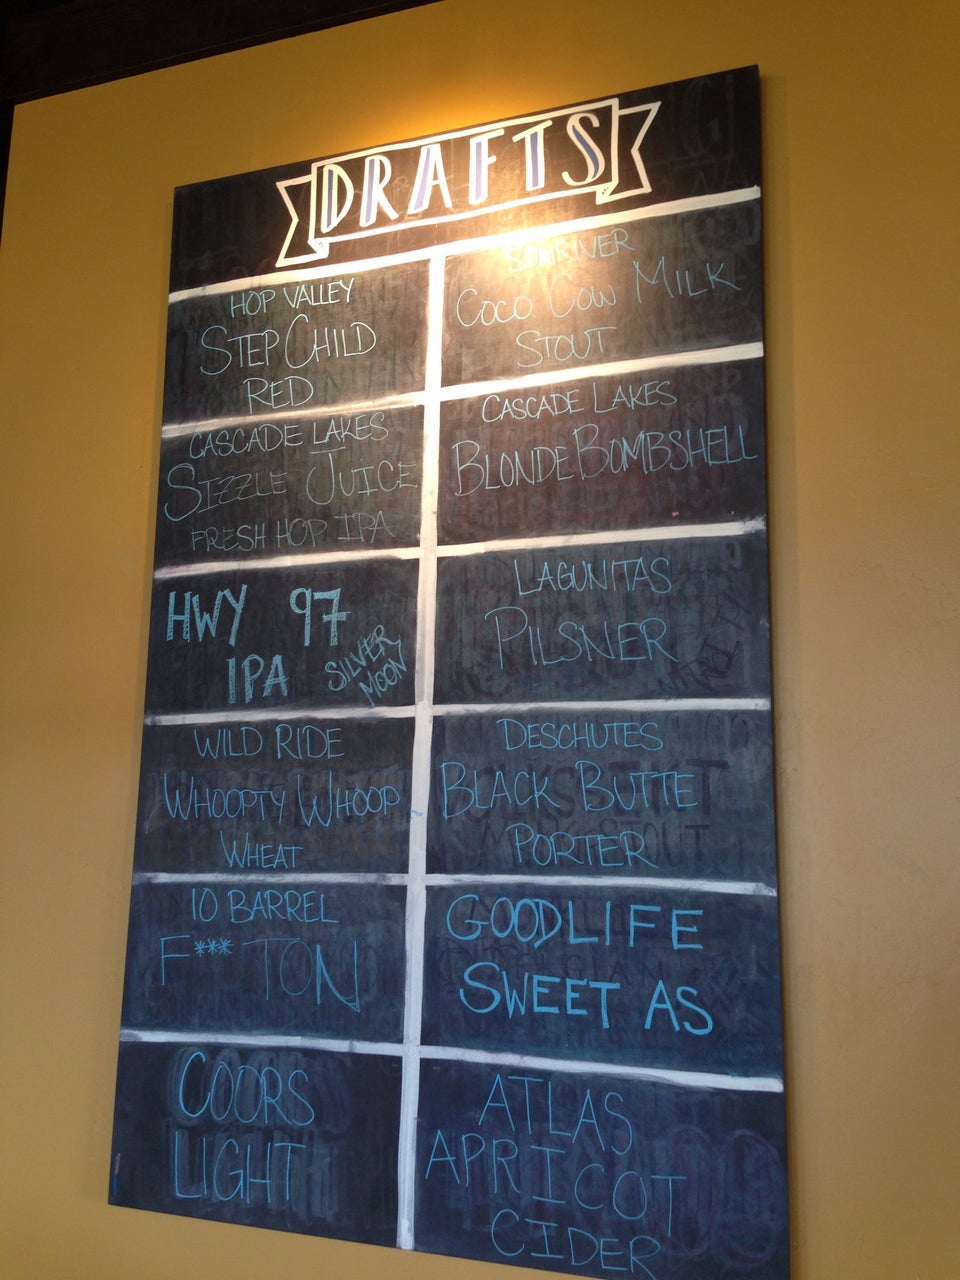 DRAFTS
HOP VALLEY
STEP CHILD
RED
SUNRIVER
COCO COW MILK
STOUT
CASCADE LAKES
SIZZLE JUICE
FRESH HOP IPA
CASCADE LAKES
BLONDE BOMBSHELL
HWY 97
IPA
SILVER
MOON
LAGUNITAS
PILSNER
WILD RIDE
WHOOPTY WHOOP
WHEAT
DESCHUTES
BLACK BUTTE
PORTER
10 BARREL
F*** TON
GOODLIFE
SWEET AS
COORS
LIGHT
ATLAS
APRICOT
CIDER